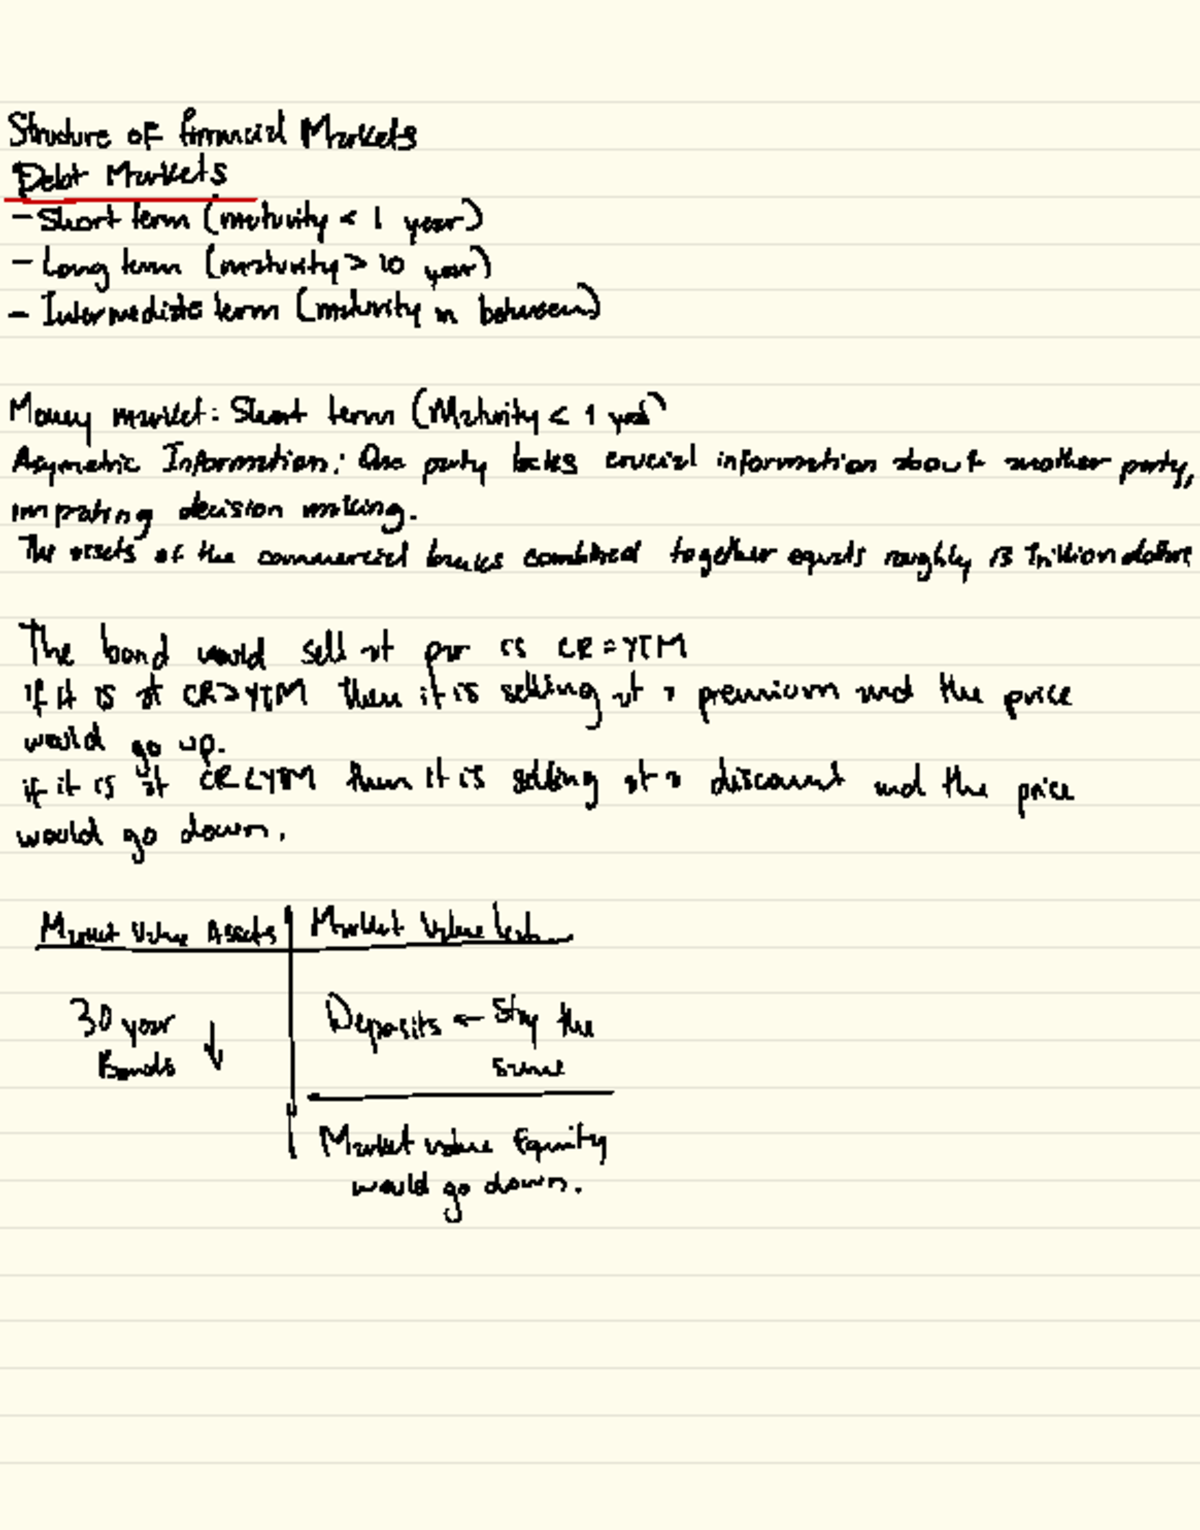 Structure of financial Markets
Debt Markets
- Short term (maturity < 1 year)
- Long term (maturity > 10 year)
- Intermediate term (maturity in between)
Money market: Short term (Maturity < 1 year)
Asymetric Information: One party lacks crucial information about another party,
impating decision making.
The assets of the commercial banks combined together equals roughly 13 Trillion dollars
The bond would sell at par is CR = YTM
if it is at CR > YTM then it is selling at a premium and the price
would go up.
if it is at CR < YTM then it is selling at a discount and the price
would go down.
Market Value Assets | Market Value
30 year Bonds ↓ | Deposits ← Stay the same
Market value Equity
would go down.